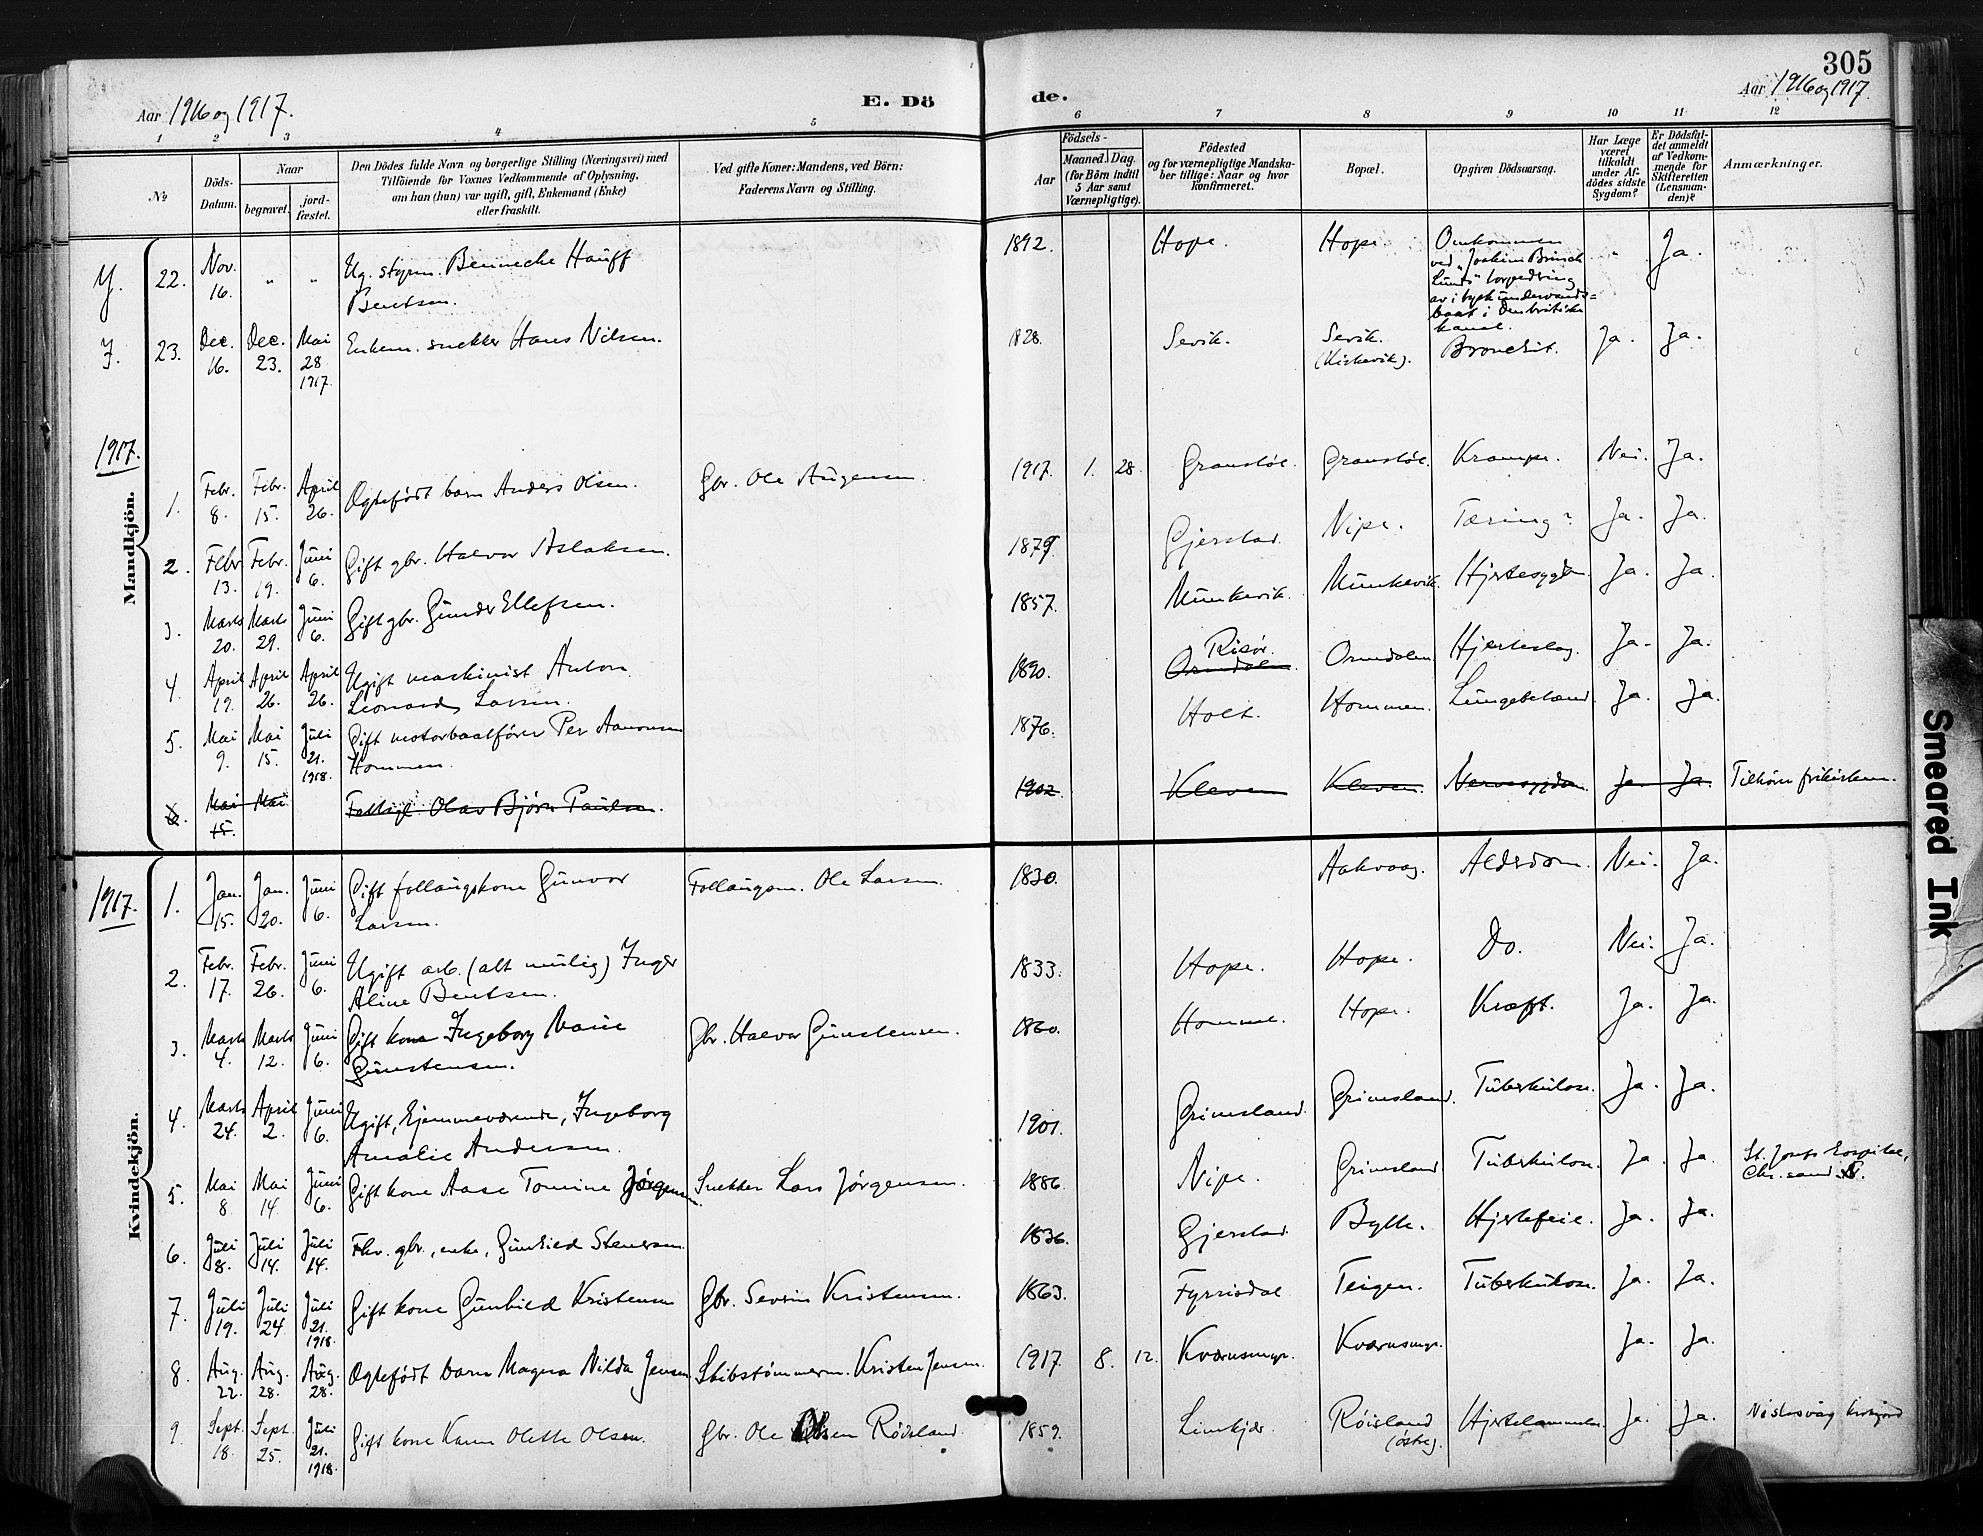 305
Aar 1916 og 1917.
E. Dö
de.
Aar 1916 og 1917.
1 2 3 4 5 6 7 8 9 10 11 12
No
Döds-Datum.
Naar
begravet.
jord-fæstet.
Den Dödes fulde Navn og borgerlige Stilling (Næringsvei) med
Tilföiende for Voxnes Vedkommende af Oplysning,
om han (hun) var ugift, gift, Enkemand (Enke)
eller fraskilt.
Ved gifte Koner: Mandens, ved Börn:
Faderens Navn og Stilling.
Födsels-
Aar
Maaned. Dag.
(for Börn indtil
5 Aar samt
Værnepligtige).
Födested
og for værnepligtige Mandska-
ber tillige: Naar og hvor
konfirmeret.
Bopæl.
Opgiven Dödsaarsag.
Har Læge
været
tilkaldt
under Af-
dödes sidste
Sygdom?
Er Dödsfal-
det anmeldt
af Vedkom-
mende for
Skifteretten
(Lensman-
den)?
Anmærkninger.
Mandkjön.
22. Nov. 16. " " Ug. styrm. Bennecke Hauff Bentsen. 1892. Hope. Hope. Omkommen ved "Joakim Brinch Lund's" torpedering av tysk undervands=baat i Den britiske kanal. " Ja.
23. Dec. 16. Dec. 23. Mai 28 1917. Enkem. snekker Hans Nilsen. 1828. Sevik. Sevik. Bronchit. Ja. Ja.
1917.
1. Febr. 8. Febr. 15. April 26. Ægtefödt barn Anders Olsen. Gbr. Ole Augensen. 1917. 1. 28. Granstöl. Granstöl. Krampe. Nei. Ja.
2. Febr 13. Febr. 19. Juni 6. Gift gbr. Halvor Aslaksen. 1879. Gjerstad Nipe. Tæring? Ja. Ja.
3. Marts 20. Marts 29. Juni 6. Gift gbr. Gunder Ellefsen. 1857. Munkevik. Munkevik. Hjertesygdom Ja. Ja.
4. April 19. April 26. April 26. Ugift maskinist Anton Leonard Larsen. 1890. Risör. Ormdalen. Ormdalen Hjerteslag. Ja. Ja.
5. Mai 9. Mai 15. Juli 21. 1918. Gift motorbaatförer Per Aanonsen Hommen. 1876. Holt. Hommen. Lungebetænd. Ja. Ja.
6. Mai 15. Mai Fattigl. Olav Björn Paulsen. 1902. Kleven Kleven. Nervesygdom. Ja. Ja. Tilhörer frikirken.
Kvindekjön.
1917.
1. Jan. 15. Jan. 20. Juni 6. Gift follaugskone Gunvor Larsen. Follaugsm. Ole Larsen. 1830. Aakvaag. Alderdom. Nei. Ja.
2. Febr. 17. Febr. 26. Juni 6. Ugift arb. (alt mulig) Inger Aline Bentsen. 1833. Hope. Hope. Do. Nei. Ja.
3. Marts 4. Marts 12. Juni 6. Gift kone Ingeborg Marie Gunstensen. Gbr. Halvor Gunstensen. 1860. Homme. Hope. Kræft. Ja. Ja.
4. Marts 24. April 2. Juni 6. Ugift, hjemmeværende, Ingeborg Amalie Andersen. 1901. Grimsland. Grimsland. Tuberkulose. Ja. Ja.
5. Mai 8. Mai 14. Juni 6. Gift kone Aase Tomine Jörgensen. Snekker Lars Jörgensen. 1886. Nipe. Grimsland. Tuberkulose. Ja. Ja. St. Josefs hospital, Chr.sand S.
6. Juli 8. Juli 14. Juli 14. Fhv. gbr., enke, Gunhild Stensen. 1836. Gjerstad. Bylte. Hjertefeil. Ja. Ja.
7. Juli 19. Juli 24. Juli 21. 1918. Gift kone Gunhild Kristensen Gbr. Severin Kristensen. 1863. Fyrrisdal. Teigen. Tuberkulose. Ja. Ja.
8. Aug. 22. Aug. 28. Aug. 28. Ægtefödt barn Magna Nilda Jensen Skibstömmerm. Kristen Jensen. 1917. 8. 12. Kværnsmyr. Kværnsmyr. Ja. Ja.
9. Sept. 18. Sept. 25. Juli 21. 1918. Gift kone Karen Olette Olsen. Gbr. Ole Olsen Röisland. 1859. Limkjær. Röisland (östre). Hjertelammelse. Ja. Ja.
Smeared Ink